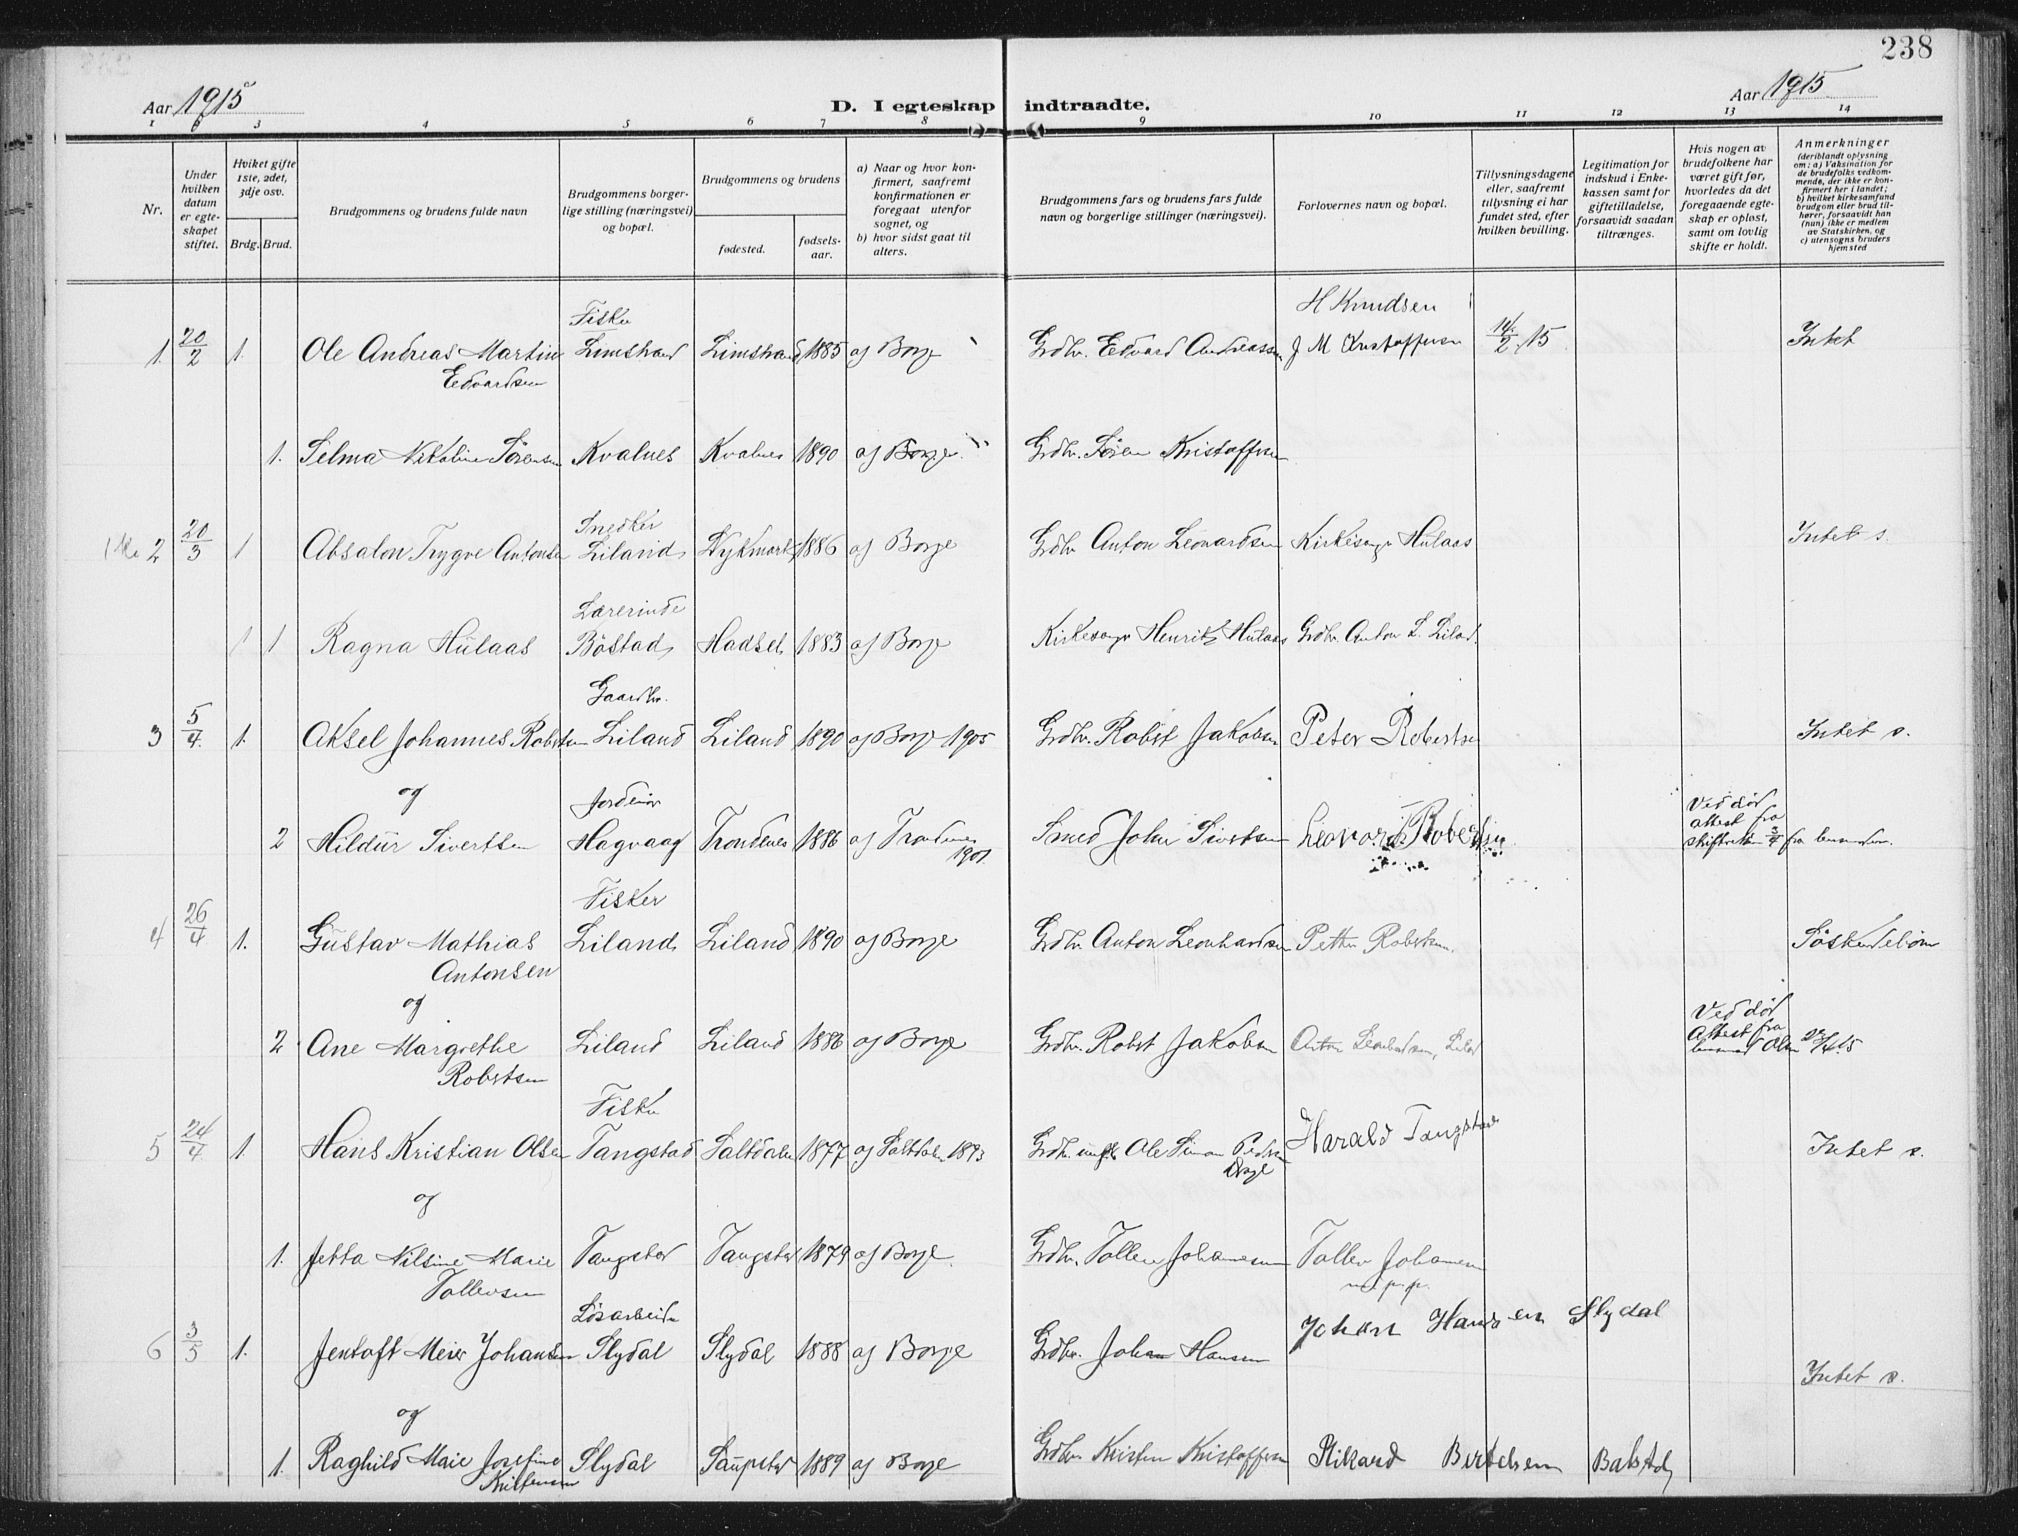 238
Aar 1915
D. I egteskap indtraadte.
Aar 1915
1 2 3 4 5 6 7 8 9 10 11 12 13 14
Nr.
Under hvilken datum er egteskapet stiftet.
Hviket gifte 1ste, 2det, 3dje osv.
Brdg. Brud.
Brudgommens og brudens fulde navn
Brudgommens borgerlige stilling (næringsvei) og bopæl.
Brudgommens og brudens
fødested.
fødselsaar.
a) Naar og hvor konfirmert, saafremt konfirmationen er foregaat utenfor sognet, og
b) hvor sidst gaat til alters.
Brudgommens fars og brudens fars fulde navn og borgerlige stillinger (næringsvei).
Forlovernes navn og bopæl.
Tillysningsdagene eller, saafremt tillysning ei har fundet sted, efter hvilken bevilling.
Legitimation for indskud i Enkekassen samt for giftetilladelse, forsaavidt saadan tiltrænges.
Hvis nogen av brudefolkene har været gift før, hvorledes da det foregaaende egteskap er opløst, samt om lovlig skifte er holdt.
Anmerkninger
(deriblandt oplysning om: a) Vaksination for de brudefolks vedkommende, der ikke er konfirmert her i landet; b) hvilket kirkesamfund brudgom eller brud tilhører, forsaavidt han (hun) ikke er medlem av Statskirken, og c) utensogns bruders hjemsted
Fisker
H Knudsen
1 20/2 1. Ole Andreas Martin Limstrand Limstrand 1885 af Borge Grdbr. Edvard Andreassen J M Kristoffersen 14/2 15 Intet
Edvardsen
1. Selma Nikoline Sørensen Kvalnes Kvalnes 1890 af Borge Grdbr. Søren Kristoffersen
Snedker
2 20/3 1 Absalon Trygve Antonsen Liland Nykmark 1886 af Borge Grdbr Anton Leonardsen Kirkesanger Hulaas Intet s.
Lærerinde
1 Ragna Hulaas Bøstad Hadsel 1883 af Borge Kirkesanger Henrik Hulaas Grdbr. Anton L. Liland
Gaardbr.
3 5/4. 1. Aksel Johannes Robertsen Liland Liland 1890 af Borge 1905 Grdbr. Robert Jakobsen Peter Robertsen Intet s.
og
Jordmor
Ved død
attest fra
2 Hildur Sivertsen Hagvaag Trondenes 1886 af Trondenes Smed John Sivertsen Leonard Robertsen skifteretten 3/4 fra
1901
Fisker
4 26/4 1. Gustav Mathias Liland Liland 1890 af Borge Grdbr. Anton Leonhardsen Petter Robertsen. Søskendebørn
Antonsen
og
Ved død
Attest fra
2 Ane Margrethe Liland Liland 1886 af Borge Grdbr. Robert Jakobsen Anton Leonhardsen, Liland
Robertsen
Fisker
5 24/4. 1 Hans Kristian Olsen Tangstad Saltdalen 1877 af Saltdalen 1893 Grdbr. Ole Simon Pedersen Harald Tangstad Intet s.
og
1. Jetta Nilsine Marie Tangstad Tangstad 1879 af Borge. Grdbr. Tollev Johannesen Tollev Johannesen
Tollevsen m. p. p.
Løsarbeider
Johan Hansen Slydal
6 3/5 1. Jentoft Meier Johansen Slydal Slydal 1888 af Borge Grdbr. Johan Hansen
Intet s.
og
1. Raghild Maie Josefine Slydal Saupstad 1889 af Borge Grdbr. Kristen Kristoffersen Rikard Bertelsen Balstad
Kristensen